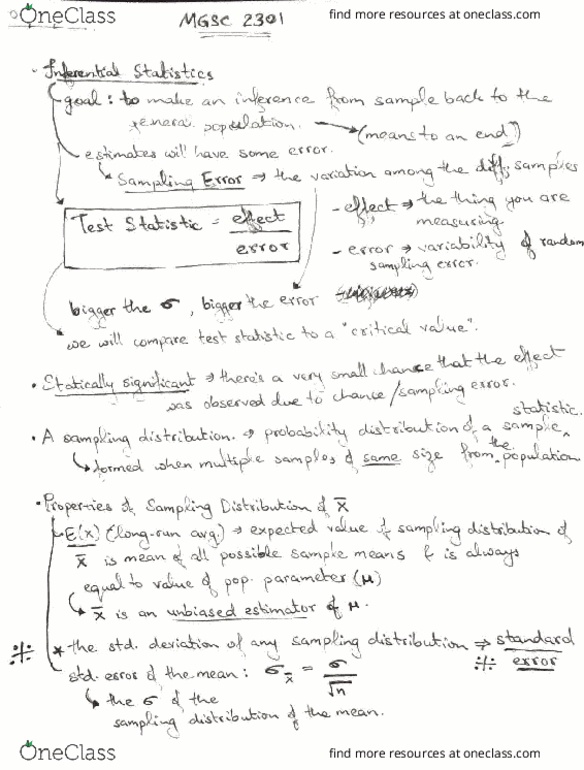 OneClass
find more resources at oneclass.com
MGSC 2301
· Inferential Statistics
goal : to make an inference from sample back to the
general population. → (means to an end)
estimates will have some error.
↳ Sampling Error → the variation among the diff. samples
Test Statistic = effect / error
- effect → the thing you are
measuring
- error → variability of random
sampling error.
bigger the σ, bigger the error
we will compare test statistic to a "critical value".
• Statically significant → there's a very small chance that the effect
was observed due to chance/sampling error.
• A sampling distribution. → probability distribution of a sample statistic.
↳ formed when multiple samples of same size from the population
• Properties of Sampling Distribution of x̄
E(x) (long-run avg.) → expected value of sampling distribution of
x̄ is mean of all possible sample means & is always
equal to value of pop. parameter (μ)
↳ x̄ is an unbiased estimator of μ.
* the std. deviation of any sampling distribution ⇒ standard error
std. error of the mean : σx̄ = σ / √n
↳ the σ of the
sampling distribution of the mean.
OneClass
find more resources at oneclass.com